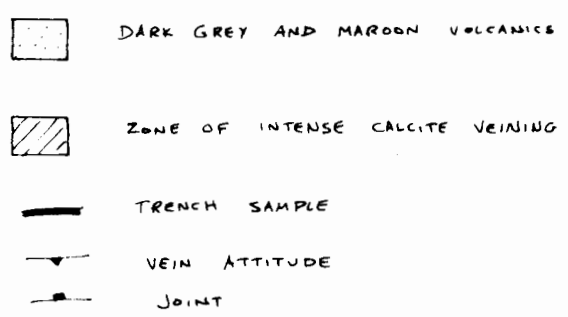 DARK GREY AND MAROON VOLCANICS
ZONE OF INTENSE CALCITE VEINING
TRENCH SAMPLE
VEIN ATTITUDE
JOINT